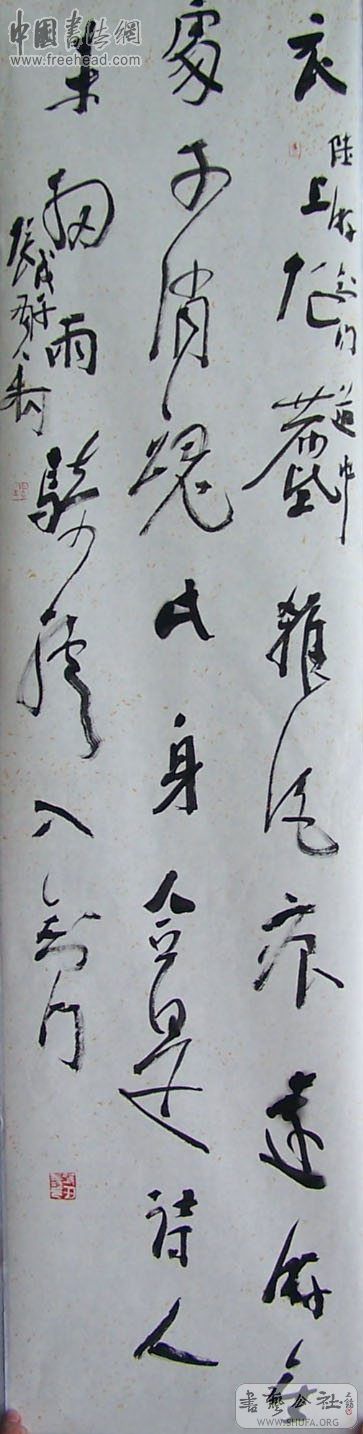 中國書法網
www.freehead.com
衣上征塵雜酒痕遠游無
處不消魂此身合是詩人
未細雨騎驢入劍門
陸游劍門道中
書藝公社
WWW.SHUFA.ORG